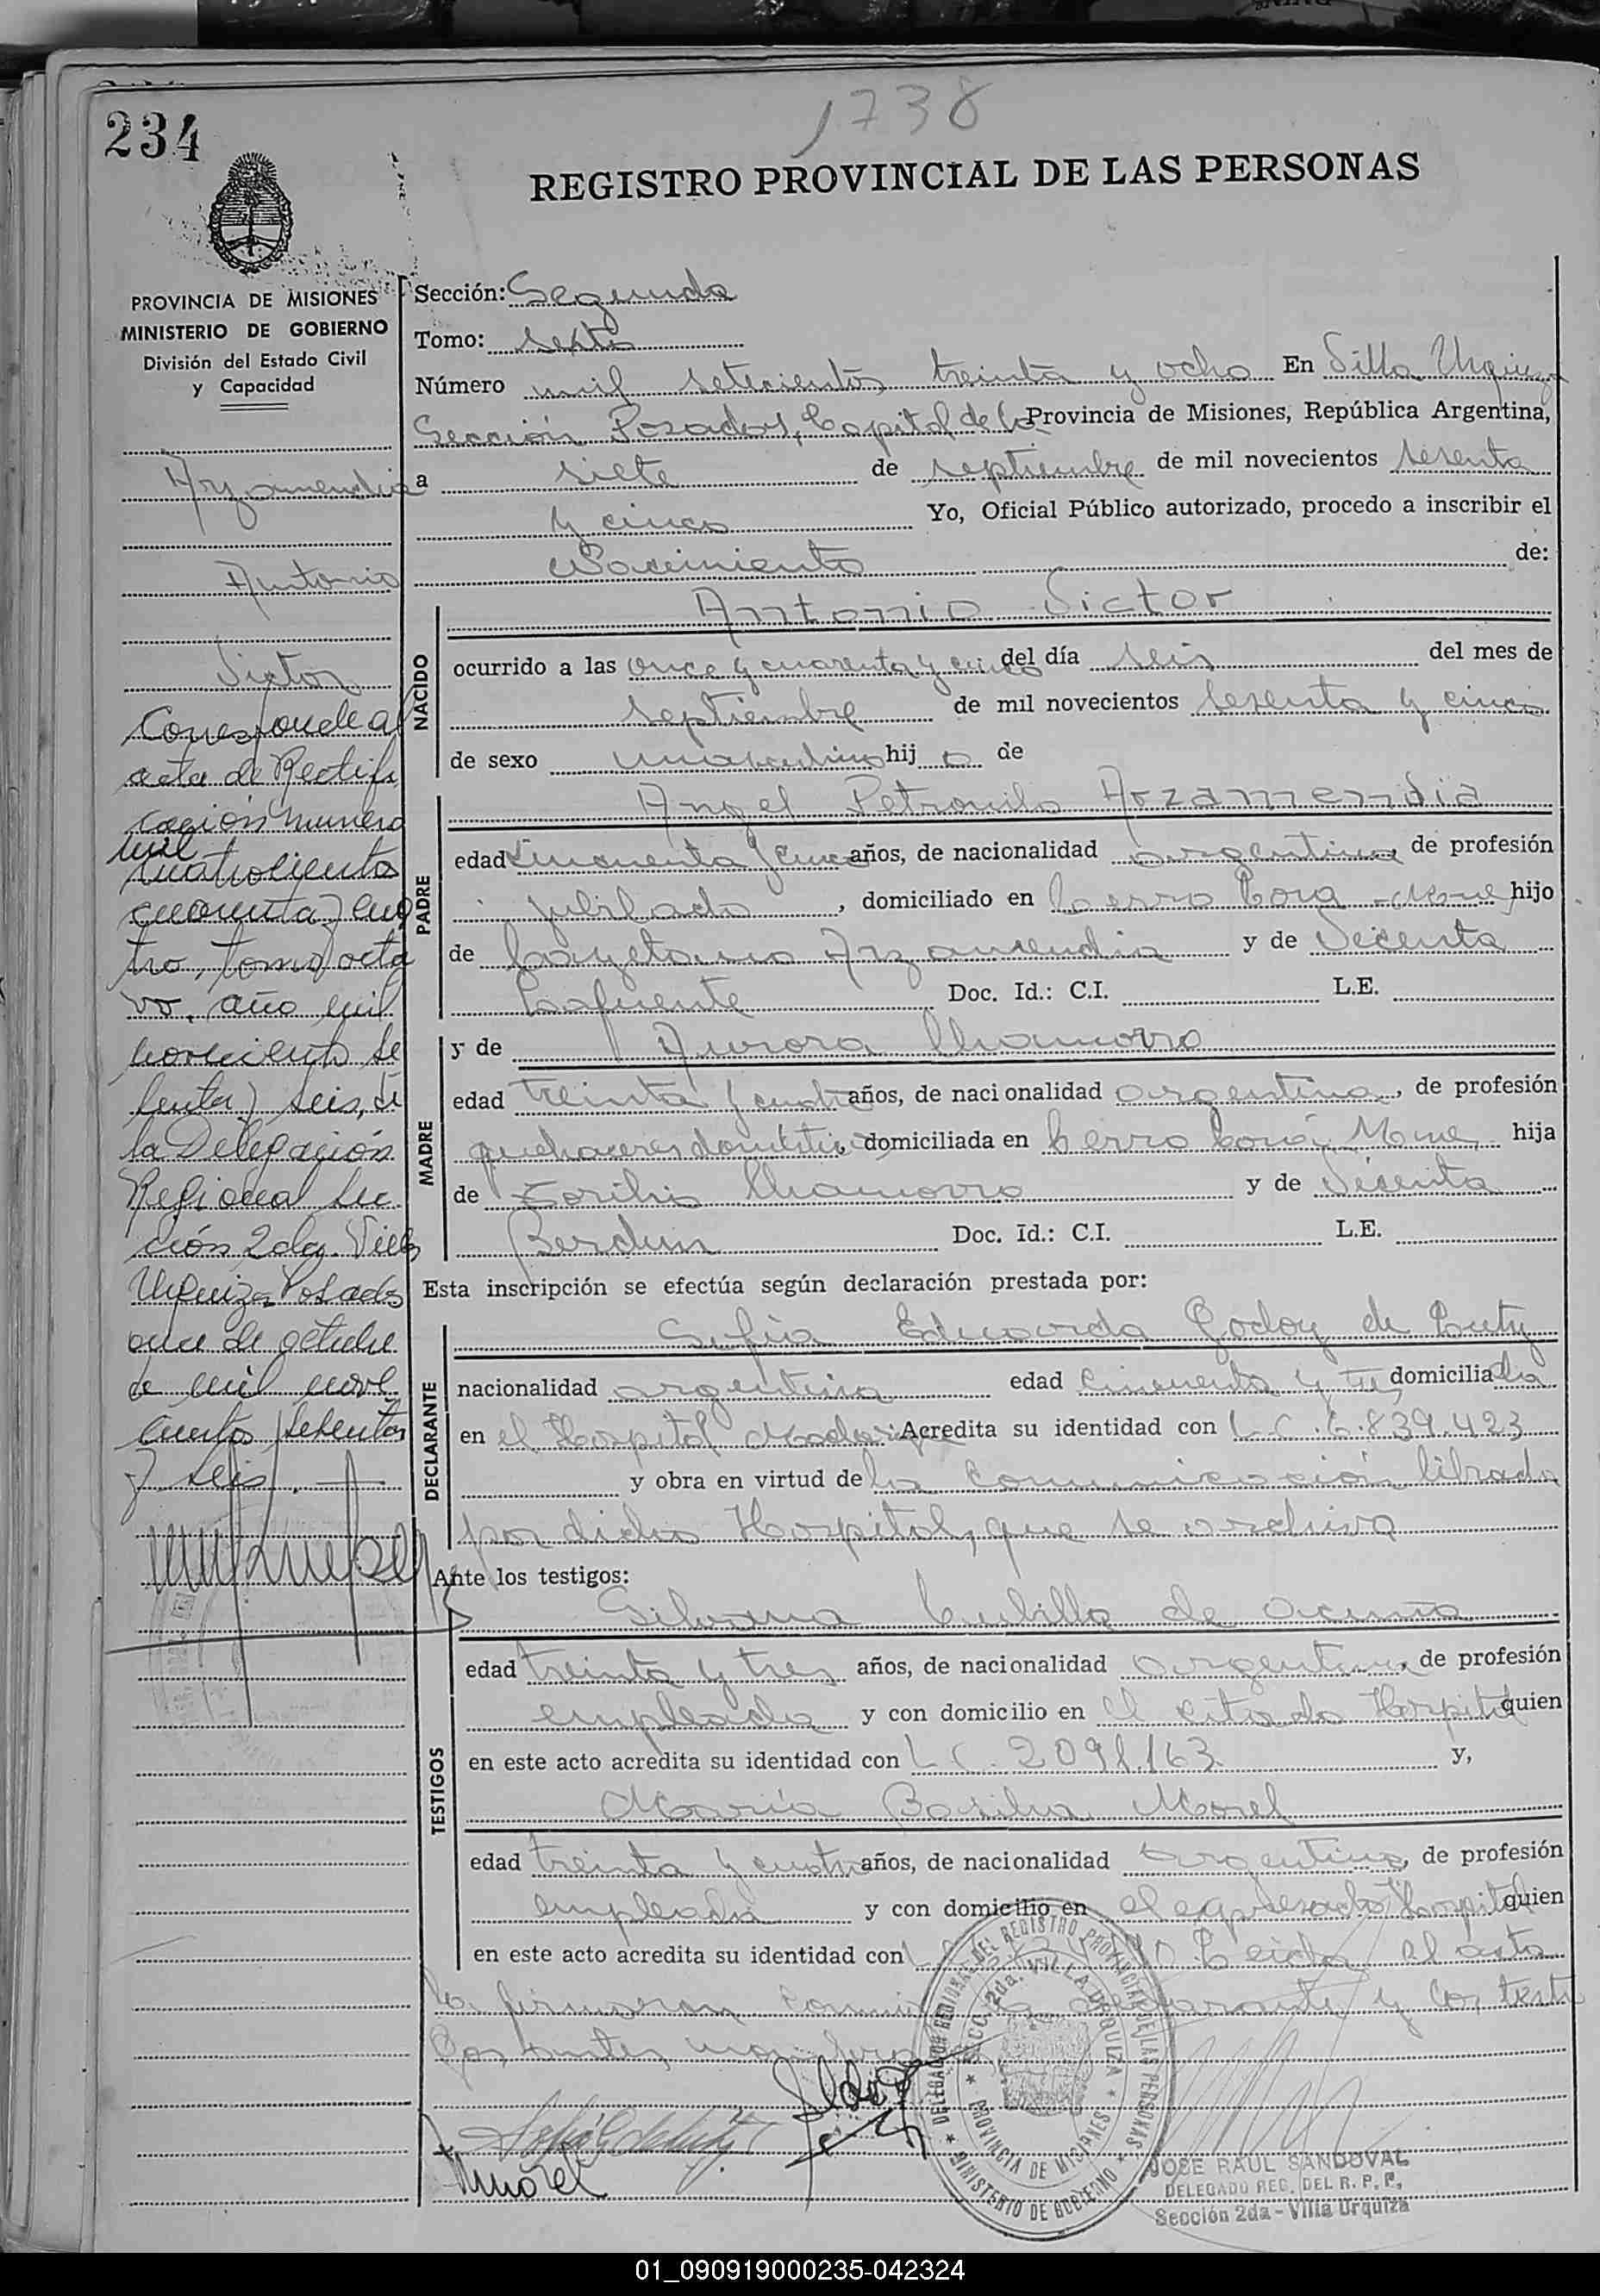 234
1738
REGISTRO PROVINCIAL DE LAS PERSONAS
PROVINCIA DE MISIONES
MINISTERIO DE GOBIERNO
División del Estado Civil
y Capacidad
Arzamendia
Antonio
Victor
Corresponde al
acta de Rectifi
cación número
mil
cuatrocientos
cuarenta y cua
tro, tomo octa
vo, año mil
novecientos se
senta y seis, de
la Delegación
Regional Sec
ción 2da. Villa
Urquiza Posadas
once de octubre
de mil nove
cientos sesenta
y seis.
Sección: Segunda
Tomo: Sexto
Número mil setecientos treinta y ocho En Villa Urquiza
Sección Posadas, Capital de la Provincia de Misiones, República Argentina,
a siete de septiembre de mil novecientos sesenta
y cinco Yo, Oficial Público autorizado, procedo a inscribir el
Nacimiento de:
NACIDO
Antonio Victor
ocurrido a las once y cuarenta y cinco del día seis del mes de
septiembre de mil novecientos sesenta y cinco
de sexo masculino hij o de
PADRE
Angel Petronilo Arzamendia
edad cincuenta y cinco años, de nacionalidad argentina, de profesión
jubilado, domiciliado en Cerro Cora - Mnes, hijo
de Cayetano Arzamendia y de Vicenta
Lafuente Doc. Id.: C.I. L.E.
MADRE
y de Aurora Chamorro
edad treinta y cuatro años, de nacionalidad argentina, de profesión
quehaceres domésticos, domiciliada en Cerro Corá, Mnes, hija
de Zorilio Chamorro y de Vicenta
Berdun Doc. Id.: C.I. L.E.
Esta inscripción se efectúa según declaración prestada por:
DECLARANTE
Sofia Eduarda Godoy de
nacionalidad argentina edad cincuenta y tres, domiciliada
en el Hospital Madariaga Acredita su identidad con L.C. 6.839.423
y obra en virtud de la comunicación librada
por dicho Hospital, que se archiva
Ante los testigos:
TESTIGOS
Silvana Cubilla de Acuña
edad treinta y tres años, de nacionalidad argentina, de profesión
empleada y con domicilio en el citado Hospital quien
en este acto acredita su identidad con L.C. 2091.163 y,
María Basilia Morel
edad treinta y cuatro años, de nacionalidad argentina, de profesión
empleada y con domicilio en el expresado Hospital quien
en este acto acredita su identidad con Leida el acta
la firmaron conmigo la declarante y los testi
gos antes
Morel
DELEGACION REGIONAL DEL REGISTRO PROVINCIAL DE LAS PERSONAS
SECC. 2da. VILLA URQUIZA
PROVINCIA DE MISIONES
MINISTERIO DE GOBIERNO
JOSE RAUL SANDOVAL
DELEGADO REG. DEL R. P. P.
Sección 2da - Villa Urquiza
01_090919000235-042324